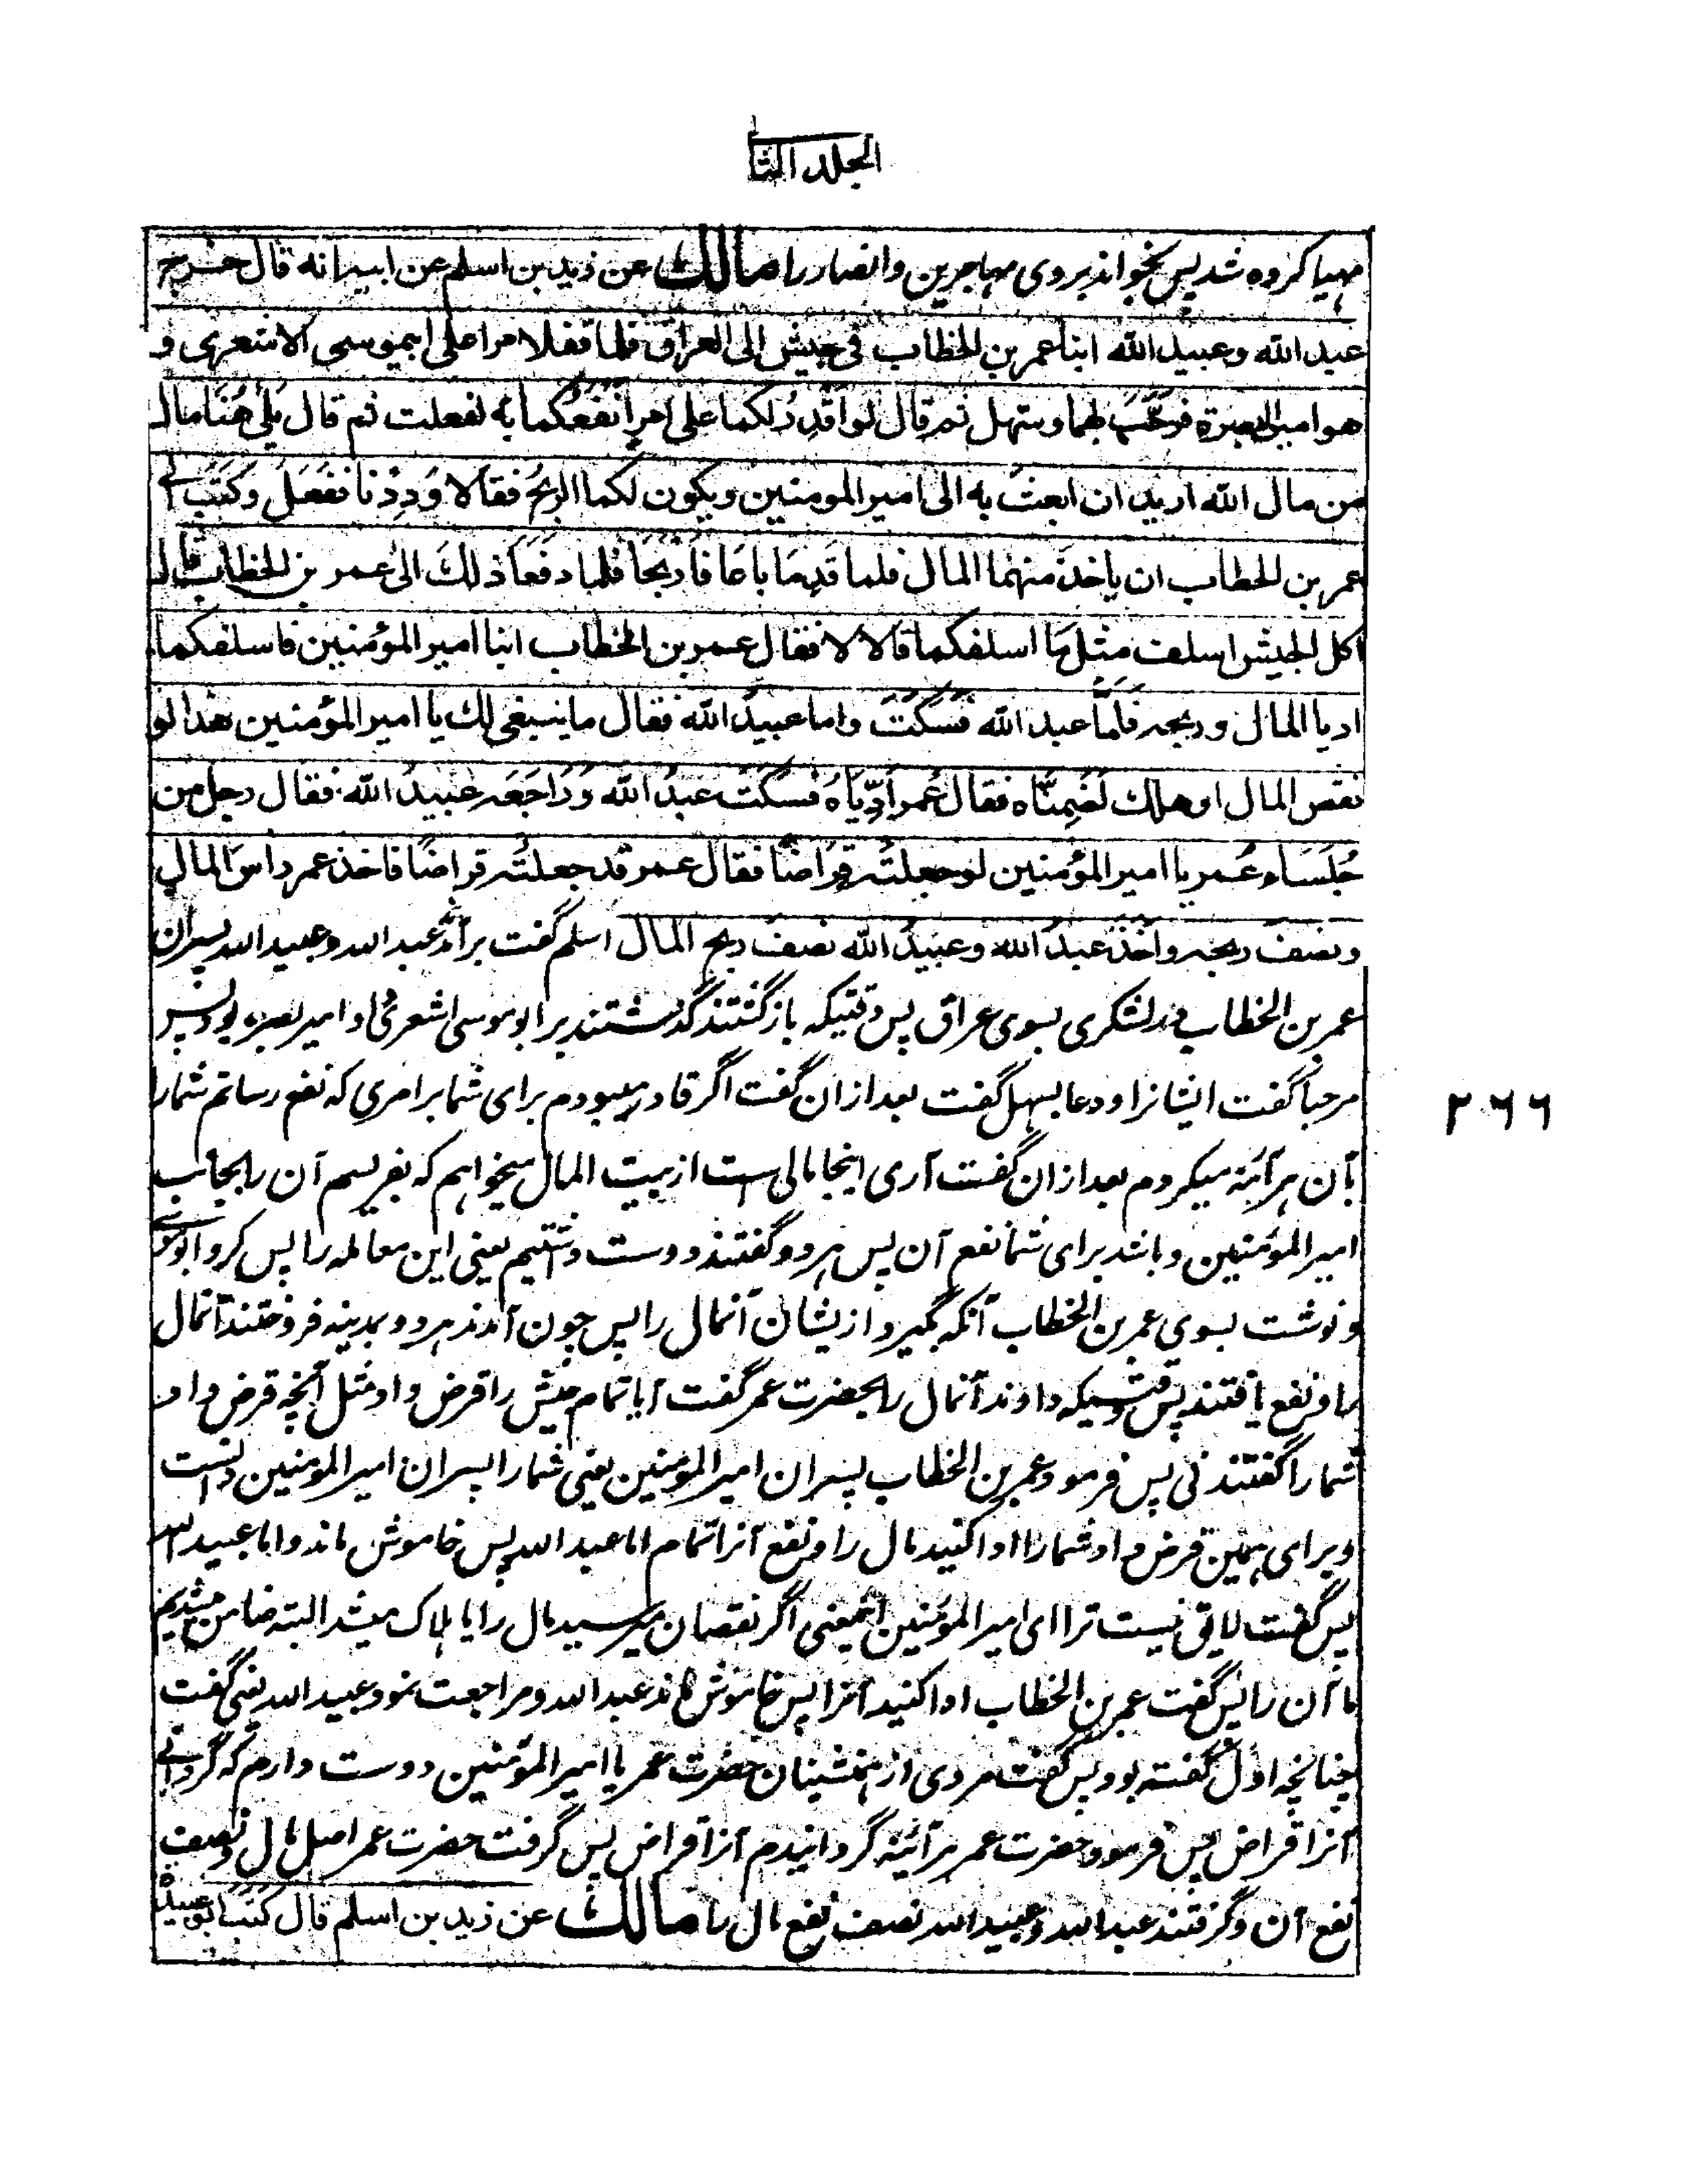 الجلد الثا
مهیا کرده شد پس بخواند بروی مهاجرین وانصار را مالك عن زيد بن اسلم عن ابيه انه قال خرج
عبد الله وعبيد الله ابنا عمر بن الخطاب فى جيش الى العراق فلما قفلا مرا على ابيموسى الاشعرى و
هو امير البصرة فرحَّب بهما وسهل ثم قال لو اقدِرُ لكما على امرٍ انفعُكما به لفعلت ثم قال بلىٰ هٰهُنا مال
من مال الله اريد ان ابعثَ به الى امير المومنين ويكون لكما الربحُ فقالا وَدِدْنا ففَعَل وكتَبَ الى
عمر بن الخطاب ان ياخذَ منهما المال فلما قَدِمَا باعَا فاَربَحَا فلما دفعَا ذلكَ الىٰ عمر بن الخطاب قال
اكل الجيش اسلف مثل مَا اسلفكما قالا لا فقال عمر بن الخطاب ابنا امير المؤمنين فاسلفكما
اديا المال وربحه فَلَمَّا عبد الله فسكتَ واما عبيدُ الله فقال ما ينبغى لك يا امير المؤمنين هذا لو
نقص المال او هلك لضَمِنَّاه فقال عُمر اَدِّيَاهُ فسكتَ عبدُ الله وَرَاجَعَه عبيدُ الله فقال رجل من
جُلَسَاء عُمر يا امير المؤمنين لو جعلتَه قِرَاضًا فقال عمر قد جعلتُه قراضًا فاخذ عمر راسَ المال
ونصفَ ربحه واخَذَ عبدُ الله وعبيدُ الله نصفَ ربح المال اسلم گفت برآمد عبد الله وعبيد الله پسران
عمر بن الخطاب در لشکری بسوی عراق پس وقتیکه بازگشتند گذشتند بر ابو موسی اشعری و او امیر بصره بود پس
مرحبا گفت ایشانرا و دعا بسهل گفت بعد ازان گفت اگر قادر میبودم برای شما بر امری که نفع رسانم شمارا
بآن هرآئنه میکردم بعد ازان گفت آری اینجا مالی ست از بیت المال میخواهم که بفریسم آن را بجانب
امیر المؤمنین وباشد برای شما نفع آن پس هر دو گفتند دوست داشتیم یعنی این معامله را پس کرد ابو موسی
ونوشت بسوی عمر بن الخطاب آنکه بگیرد ازیشان آنمال را پس چون آمدند هر دو بمدینه فروختند آنمال
را ونفع یافتند پس وقتیکه دادند آنمال را بحضرت عمر گفت آیا تمام جیش را قرض داد مثل آنچه قرض داد
شمارا گفتند نی پس فرمود عمر بن الخطاب پسران امیر المومنین یعنی شمارا پسران امیر المومنین دانست
وبرای همین قرض داد شمارا ادا کنید مال را ونفع آنرا تمام اما عبد الله پس خاموش ماند واما عبید الله
پس گفت لایق نیست ترا ای امیر المؤمنین اینمعنی اگر نقصان میرسید مال را یا هلاک میشد البته ضامن میشدیم
ما آن را پس گفت عمر بن الخطاب ادا کنید آنرا پس خاموش ماند عبد الله ومراجعت نمود عبید الله یعنی گفت
چنانچه اول گفته بود پس گفت مردی از همنشینان حضرت عمر یا امیر المؤمنین دوست دارم که گردانی
آنرا قراض پس فرمود حضرت عمر هرآئینه گردانیدم آنرا قراض پس گرفت حضرت عمر اصل مال ونصف
نفع آن وگرفتند عبد الله وعبید الله نصف نفع مال را مالك عن زيد بن اسلم قال كتب ابو عبيدة
۲۶۶